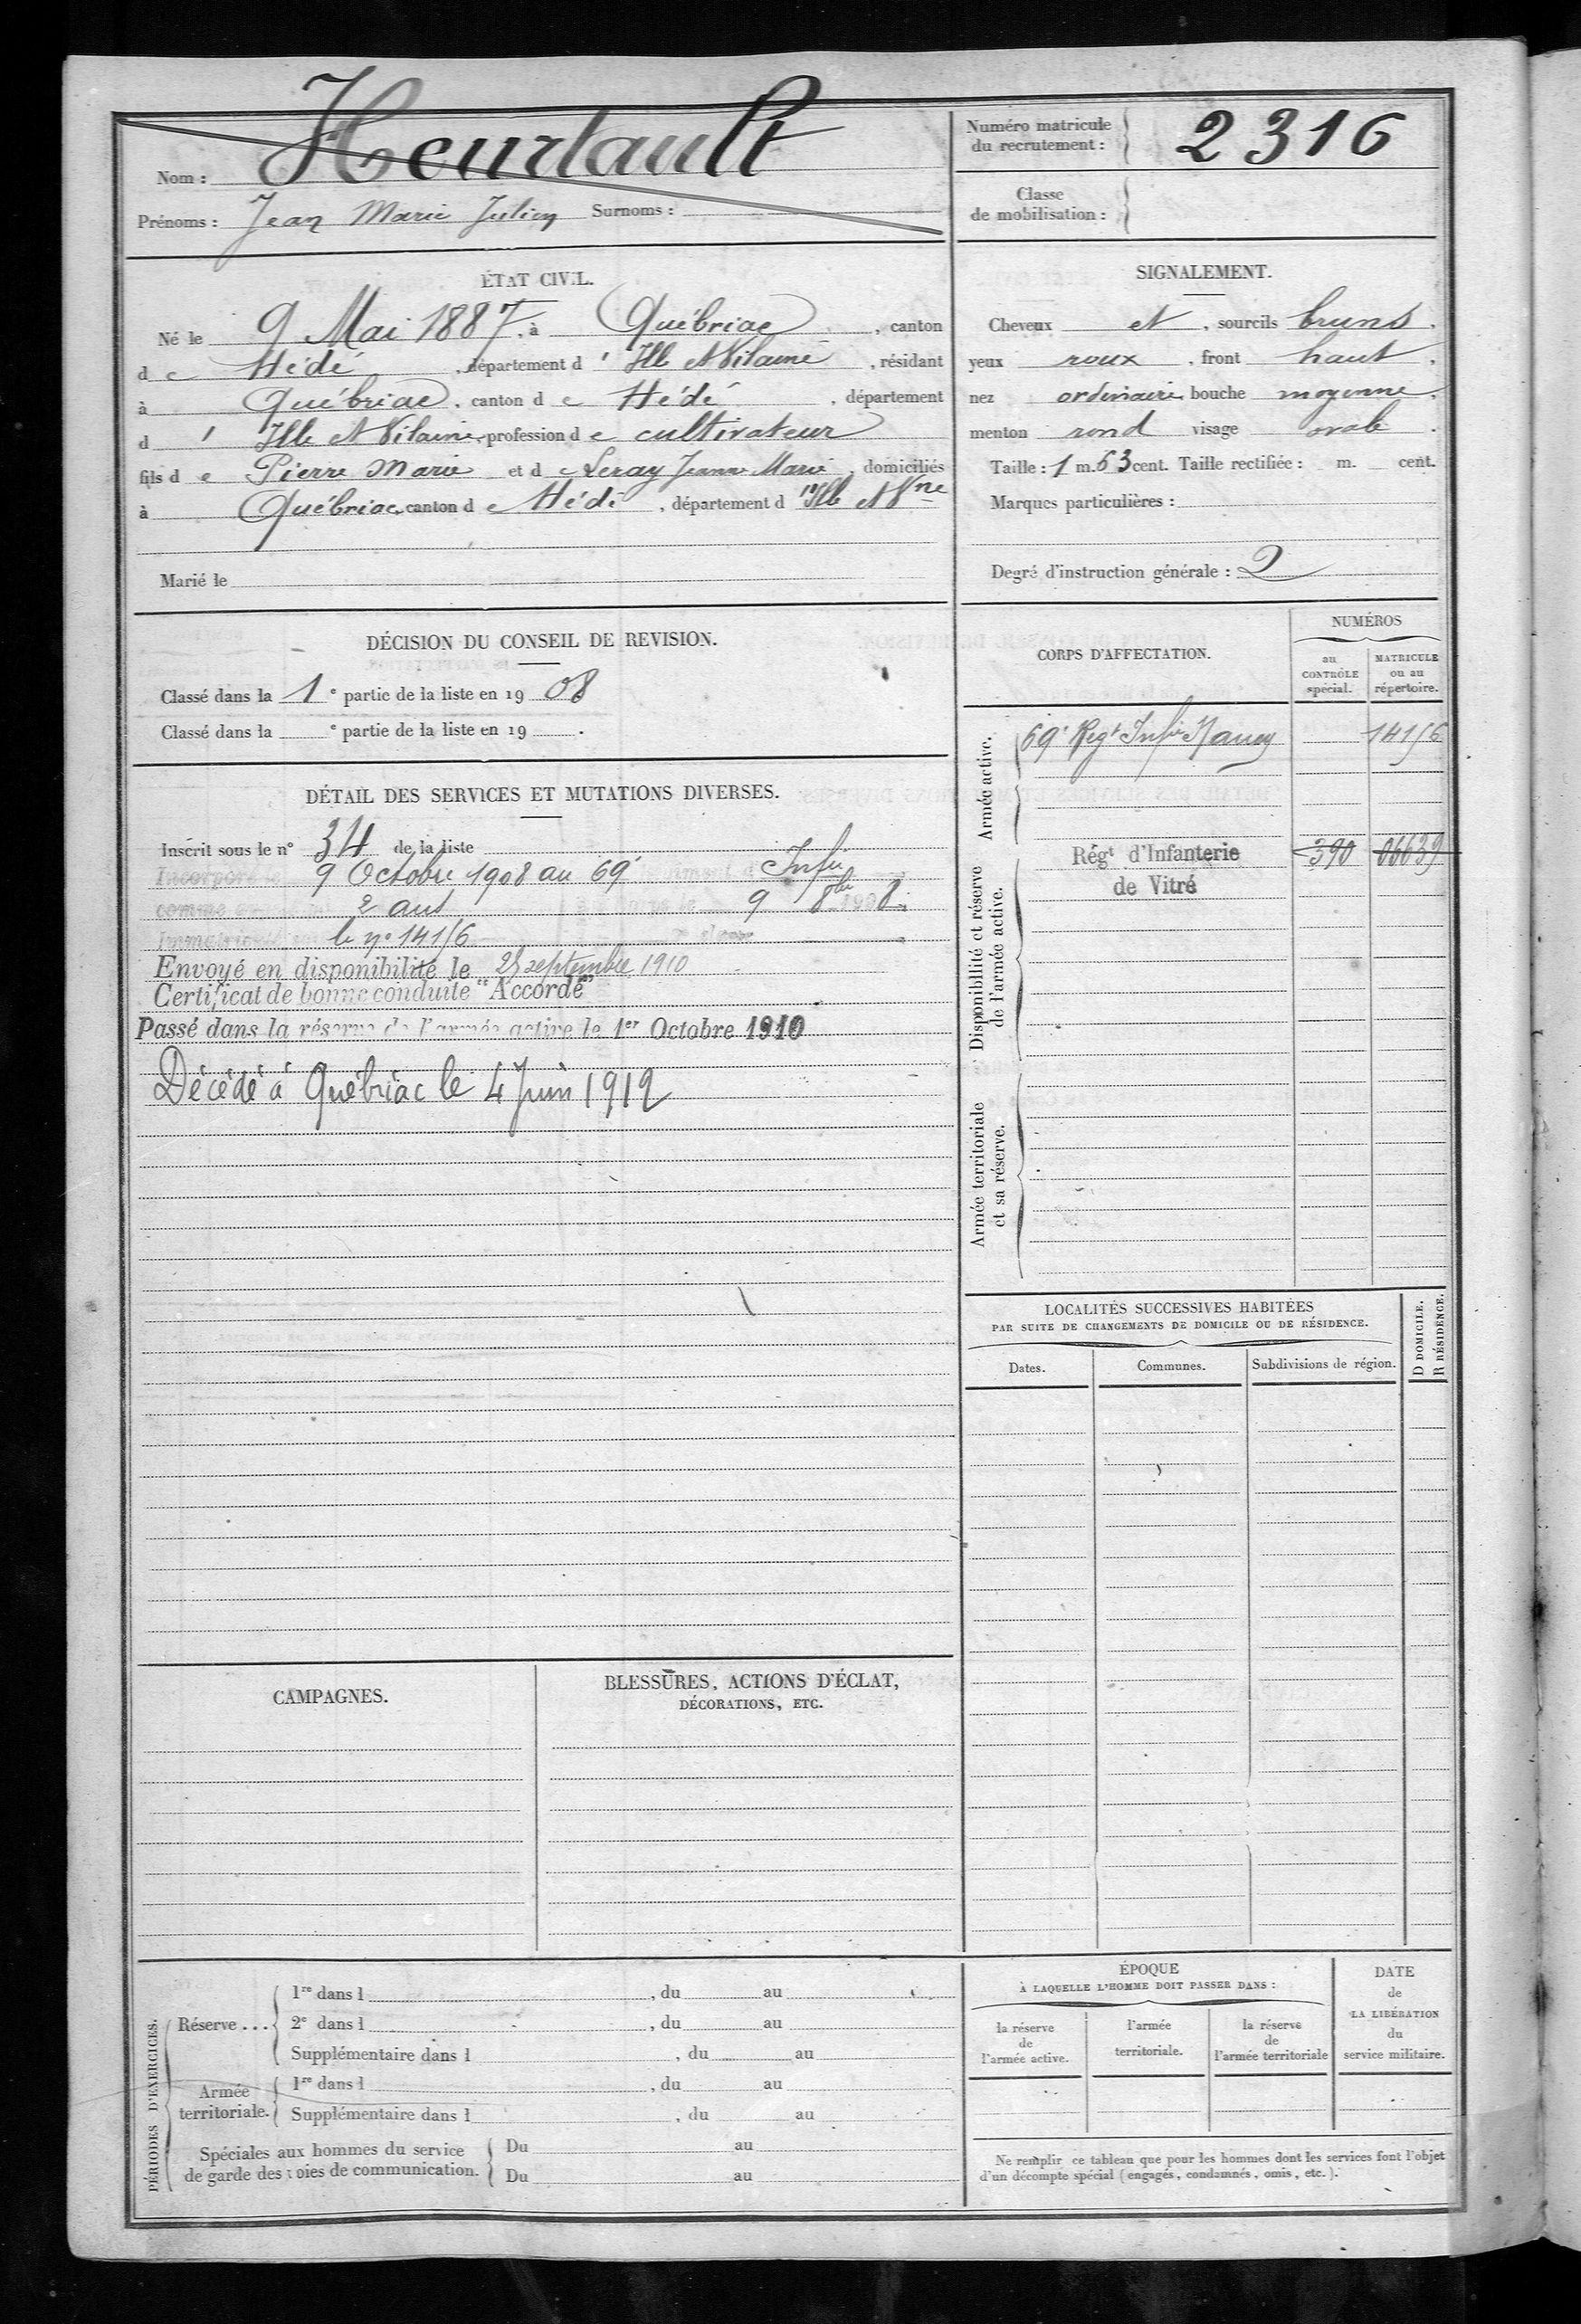 Nom : Heurtault
Prénoms : Jean Marie Julien Surnoms :
Numéro matricule
du recrutement : 2316
Classe
de mobilisation :
ÉTAT CIVIL.
Né le 9 Mai 1887, à Québriac, canton
de Hédé, département d'Ille et Vilaine, résidant
à Québriac, canton de Hédé, département
d'Ille et Vilaine, profession de cultivateur
fils de Pierre Marie et de Leray Jeanne Marie, domiciliés
à Québriac, canton de Hédé, département d'Ille et Vne
Marié le
SIGNALEMENT.
Cheveux et, sourcils bruns,
yeux roux, front haut,
nez ordinaire bouche moyenne,
menton rond visage ovale.
Taille : 1 m. 63 cent. Taille rectifiée : m. cent.
Marques particulières :
Degré d'instruction générale : 2
DÉCISION DU CONSEIL DE REVISION.
Classé dans la 1e partie de la liste en 1908
Classé dans la e partie de la liste en 19 .
DÉTAIL DES SERVICES ET MUTATIONS DIVERSES.
Inscrit sous le n° 34 de la liste
Incorporé le 9 Octobre 1908 au 69e Régiment d'Infie
2 ans 9 8bre 1908
le no 14156
Envoyé en disponibilité le 25 septembre 1910
Certificat de bonne conduite "Accordé"
Passé dans la réserve de l'armée active le 1er Octobre 1910
Décédé à Québriac le 4 Juin 1912
CORPS D'AFFECTATION.
NUMÉROS
au
CONTRÔLE
spécial.
MATRICULE
ou au
répertoire.
Armée active.
69e Regt Infie Nancy 14156
Disponibilité et réserve
de l'armée active.
Régt d'Infanterie 390 06639
de Vitré
Armée territoriale
et sa réserve.
LOCALITÉS SUCCESSIVES HABITÉES
PAR SUITE DE CHANGEMENTS DE DOMICILE OU DE RÉSIDENCE.
D DOMICILE.
R RÉSIDENCE.
Dates. Communes. Subdivisions de région.
CAMPAGNES.
BLESSURES, ACTIONS D'ÉCLAT,
DÉCORATIONS, ETC.
PÉRIODES D'EXERCICES.
Réserve ...
1re dans l , du au
2e dans l , du au
Supplémentaire dans l , du au
Armée
territoriale.
1re dans l , du au
Supplémentaire dans l , du au
Spéciales aux hommes du service
de garde des voies de communication.
Du au
Du au
ÉPOQUE
À LAQUELLE L'HOMME DOIT PASSER DANS :
la réserve
de
l'armée active.
l'armée
territoriale.
la réserve
de
l'armée territoriale
DATE
de
LA LIBÉRATION
du
service militaire.
Ne remplir ce tableau que pour les hommes dont les services font l'objet
d'un décompte spécial (engagés, condamnés, omis, etc.).